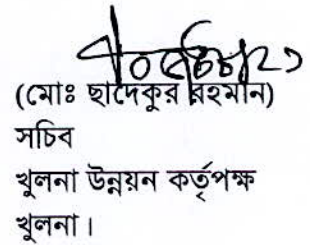 (মোঃ ছাদেকুর রহমান)
সচিব
খুলনা উন্নয়ন কর্তৃপক্ষ
খুলনা।